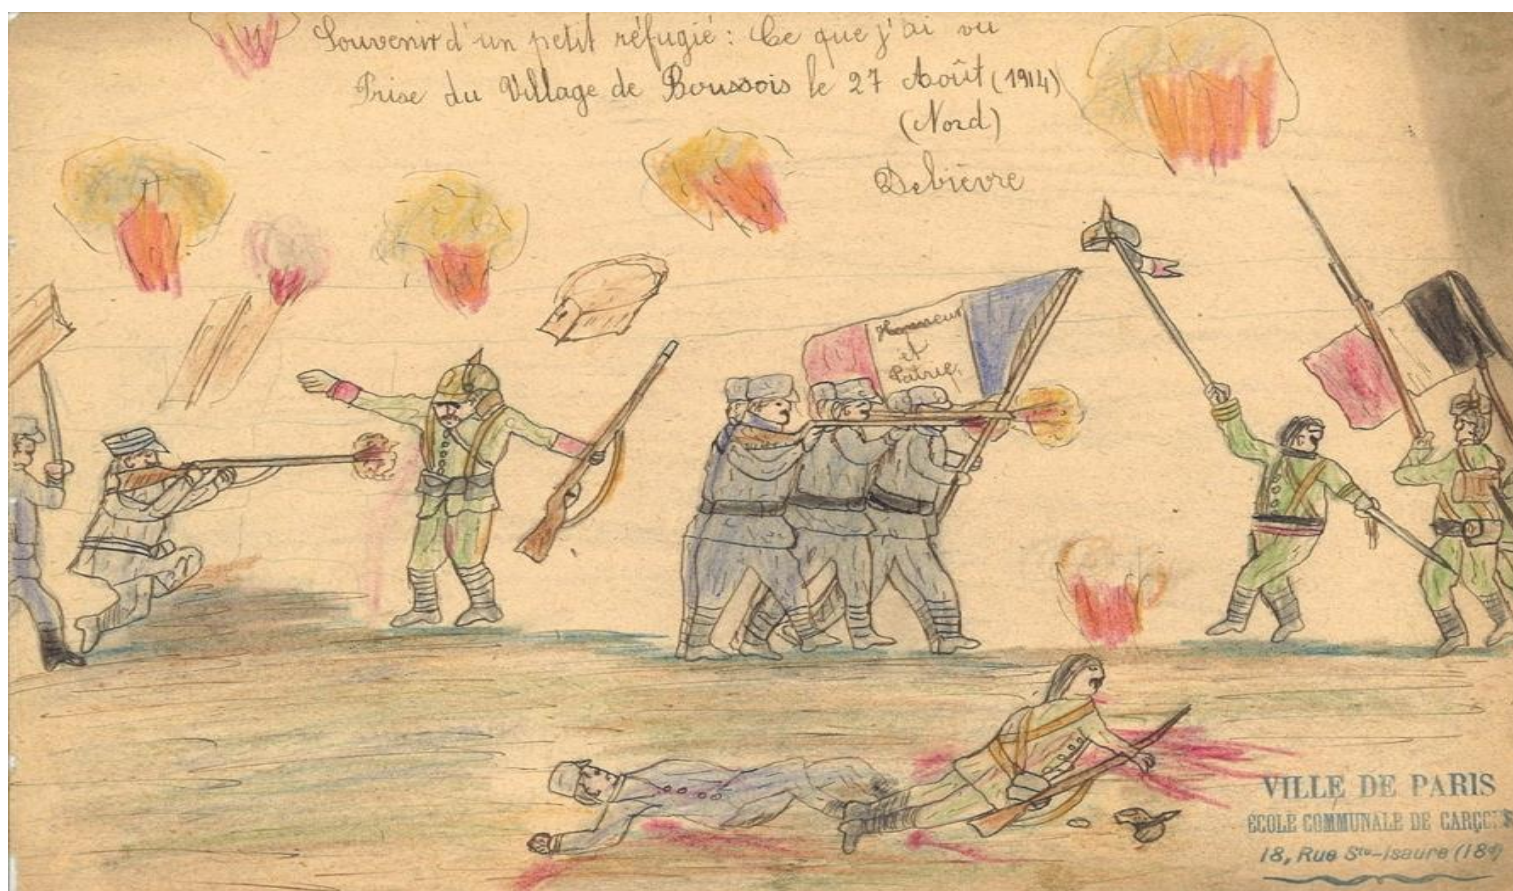 Souvenir d'un petit réfugié : Ce que j'ai vu
Prise du Village de Boussois le 27 Août (1914)
(Nord)
Debièvre
Honneur
et
Patrie
VILLE DE PARIS
ÉCOLE COMMUNALE DE GARÇONS
18, Rue Ste-Isaure (18e)